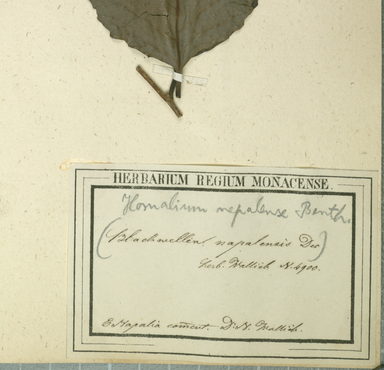 HERBARIUM REGIUM MONACENSE.
Homalium nepalense Benth.
(Blackwellia napalensis Dec)
herb. Wallich N. 4900.
E Napalia comm. D. N. Wallich.